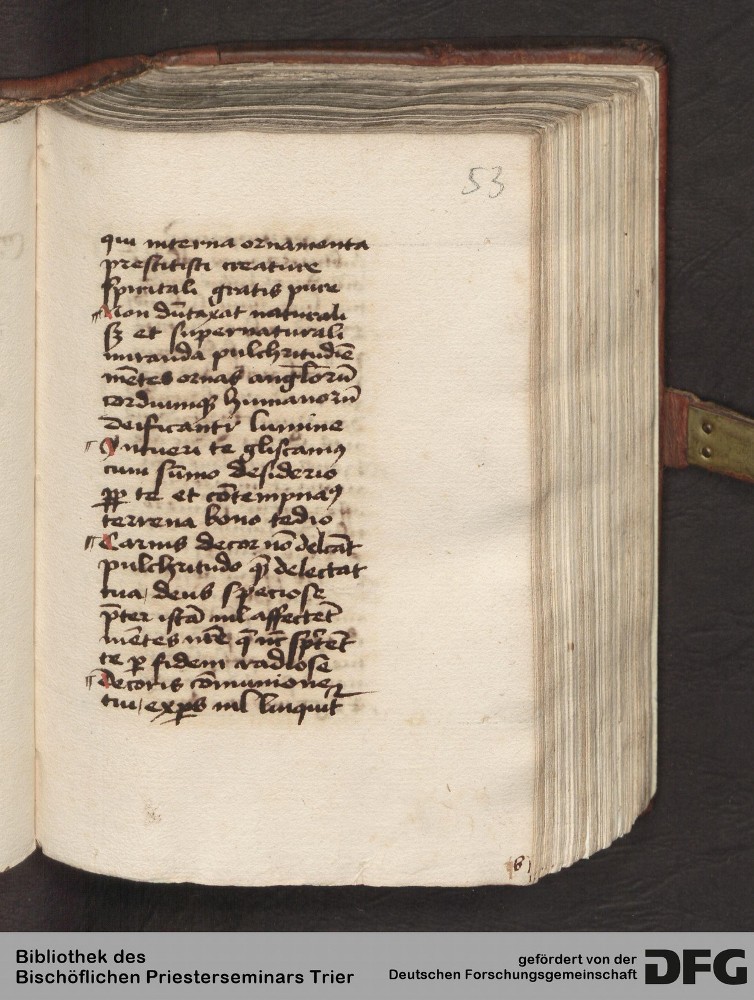 53
qui interna ornamenta
prestitisti creature
spiritali gratis pure
Non dūtaxat naturali
sꝫ et supernaturali
miranda pulchritudīe
mētes ornas angl̄orū
cordiumqꝫ humanorū
deificanti lumine
Intueri te gliscamꝰ
cum sūmo desiderio
ꝓpt̄ te et cōtempnaꝰ
terrena bono tedio
Carnis decor nō delcāt
pulchritudo q̄ delectat
tua, deus speciose
p̄ter istā nil affectēt
mētes nr̄e q̄ nūc
te ꝑ fidem radiose
Decoris cōmunione
tui, exꝑs nil linquit
Bibliothek des
Bischöflichen Priesterseminars Trier
gefördert von der
Deutschen Forschungsgemeinschaft
DFG